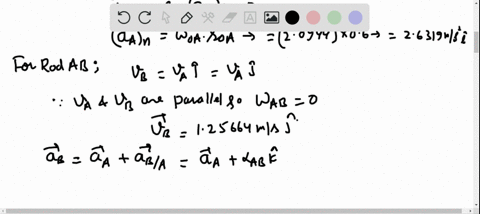 (aA)n = ωOA · rOA → = (2.0944)² × 0.6 → = 2.6319 m/s² î
For Rod AB ;
vB = vA ĵ = vA ĵ
∵ vA & vB are parallel so ωAB = 0
v⃗B = 1.25664 m/s ĵ
a⃗B = a⃗A + a⃗B/A = a⃗A + αAB k̂